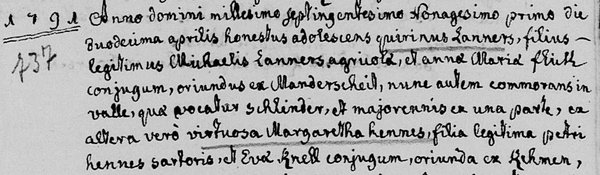 1791 Anno domini millesimo septingentesimo Nonagesimo primo die
737 duodecima aprilis honestus adolescens quirinus Lanners, filius
legitimus Michaelis Lanners agricolæ, et annæ Mariæ
conjugum, oriundus ex Manderscheit, nunc autem commorans in
valle, quæ vocatur schlinder, et majorennis ex una parte, ex
altera vero virtuosa Margaretha hennes, filia legitima petri
hennes sartoris, et Evæ Knell conjugum, oriunda ex Kehmen,